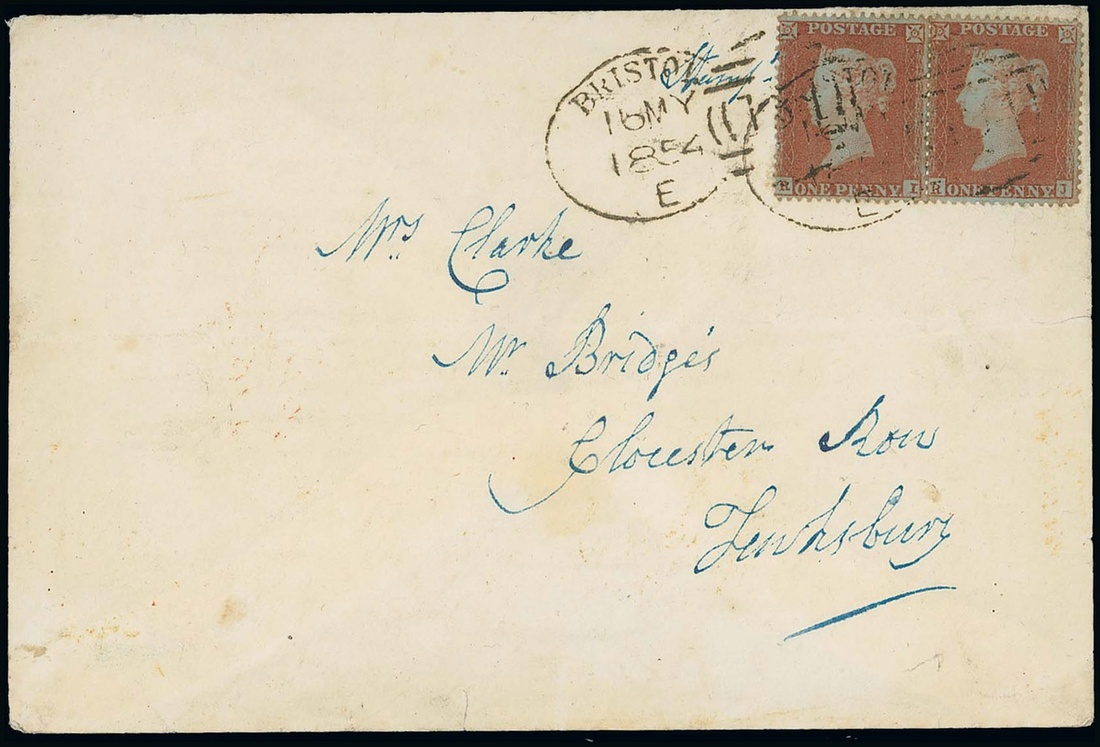 BRISTOL
16 MY
1854
E
POSTAGE
ONE PENNY
R I
POSTAGE
ONE PENNY
R J
Mrs Clarke
Mr Bridges
Gloucester Row
Tewksbury